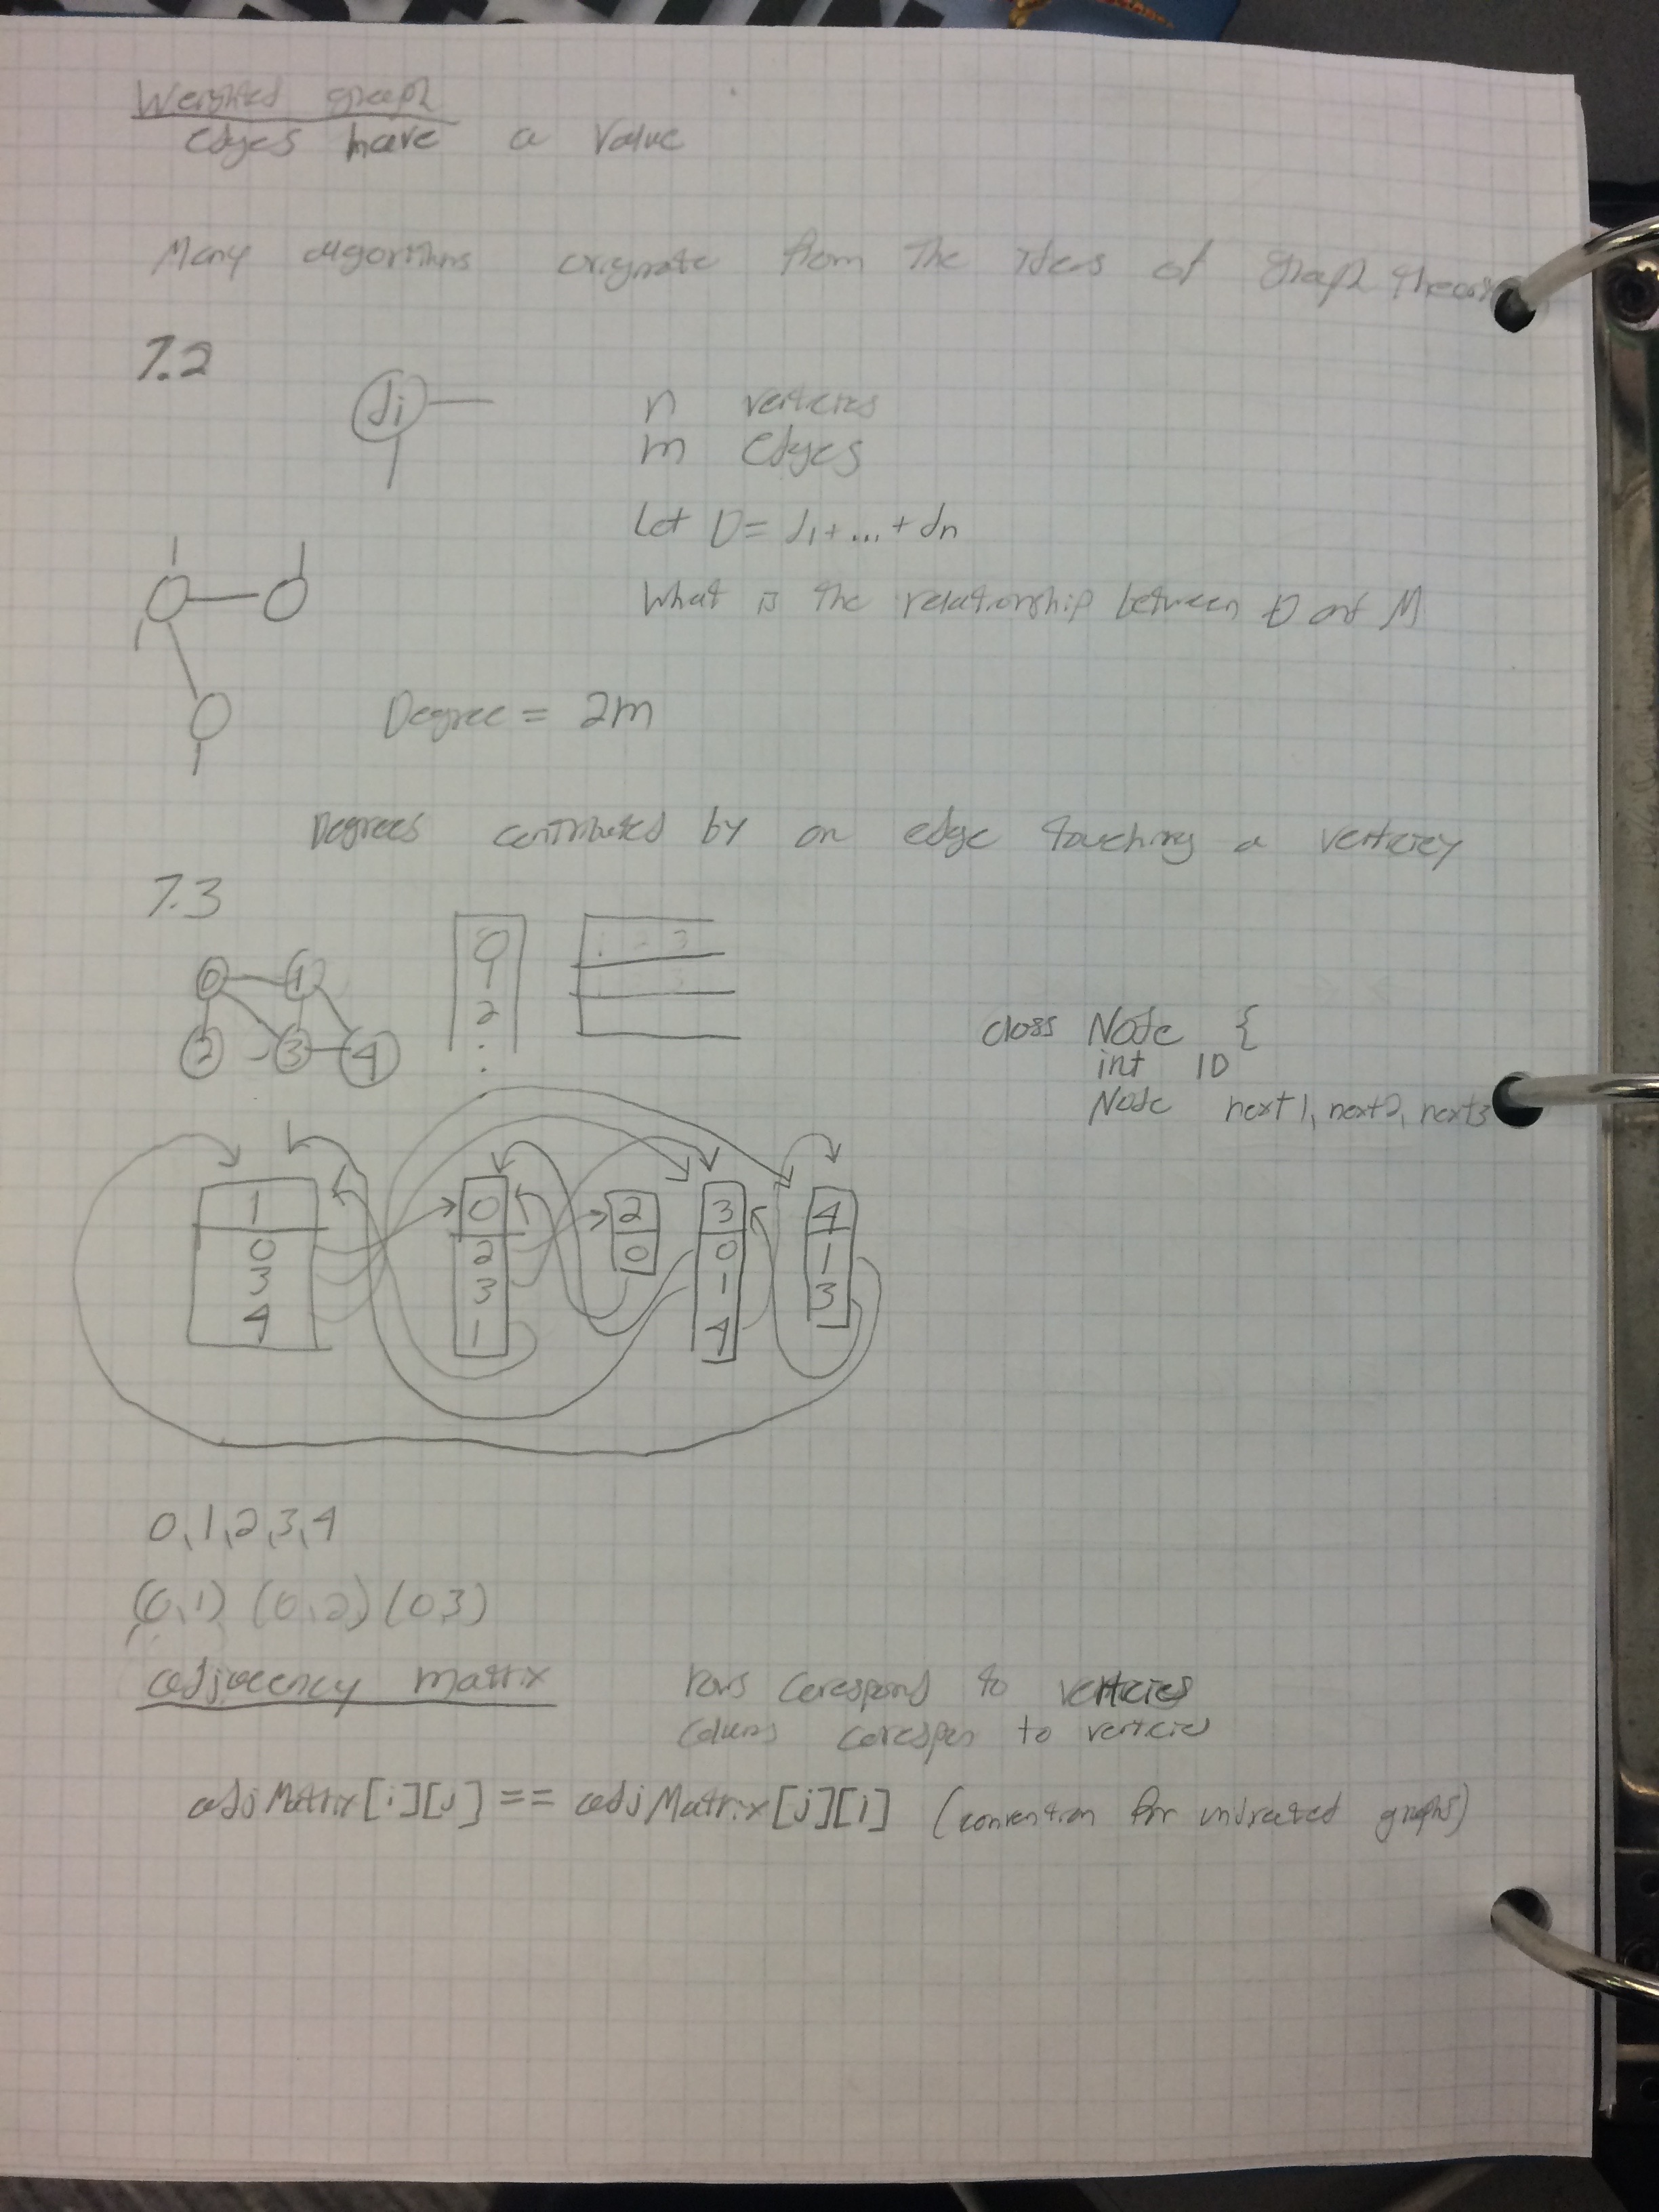 Weighted graph
edges have a value
Many algorithms originate from the ideas of graph theory
7.2
di
n verticies
m edges
Let D = d1 + ... + dn
What is the relationship between D and M
Degree = 2m
Degrees contributed by an edge touching a verticiey
7.3
0 1
2 3 4
0
1
2
:
1 2 3
3
class Node {
int ID
Node next1, next2, next3
1 0 2 3 4
0 2 0 0 1
3 3 1 3
4 1 4
0,1,2,3,4
(0,1) (0,2) (0 3)
adjacency matrix
rows corespond to verticies
to verticies
adjMatrix[i][j] == adjMatrix[j][i] (convention for undirected graphs)